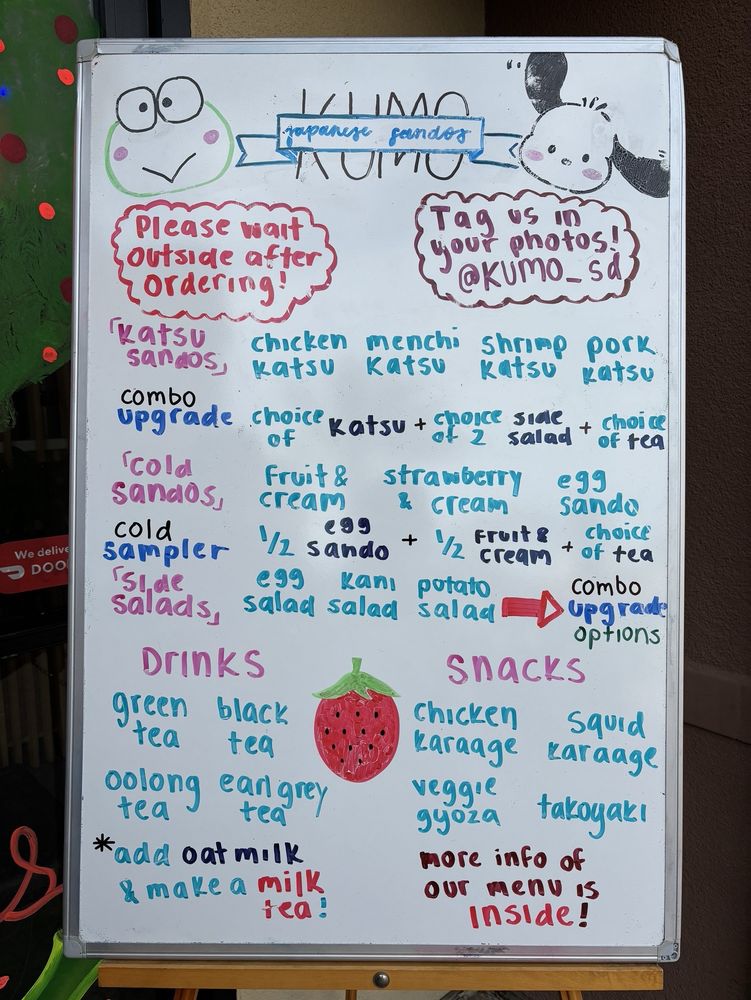 KUMO
japanese sandos
KUMO
Please wait
outside after
ordering!
Tag us in
your photos!
@KUMO_sd
「katsu
sandos」
chicken
katsu
menchi
katsu
shrimp
katsu
pork
katsu
combo
upgrade
choice
of
katsu +
choice
of 2
side
salad +
choice
of tea
「cold
sandos」
Fruit &
cream
strawberry
& cream
egg
sando
cold
sampler
1/2
egg
sando
+
1/2
Fruit &
cream
+
choice
of tea
「side
salads」
egg
salad
kani
salad
potato
salad
combo
upgrade
options
Drinks
green
tea
black
tea
oolong
tea
earl grey
tea
*add oatmilk
& make a milk
tea!
Snacks
chicken
karaage
squid
karaage
veggie
gyoza
takoyaki
more info of
our menu is
inside!
We delive
DOO